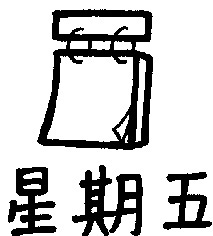 星期五